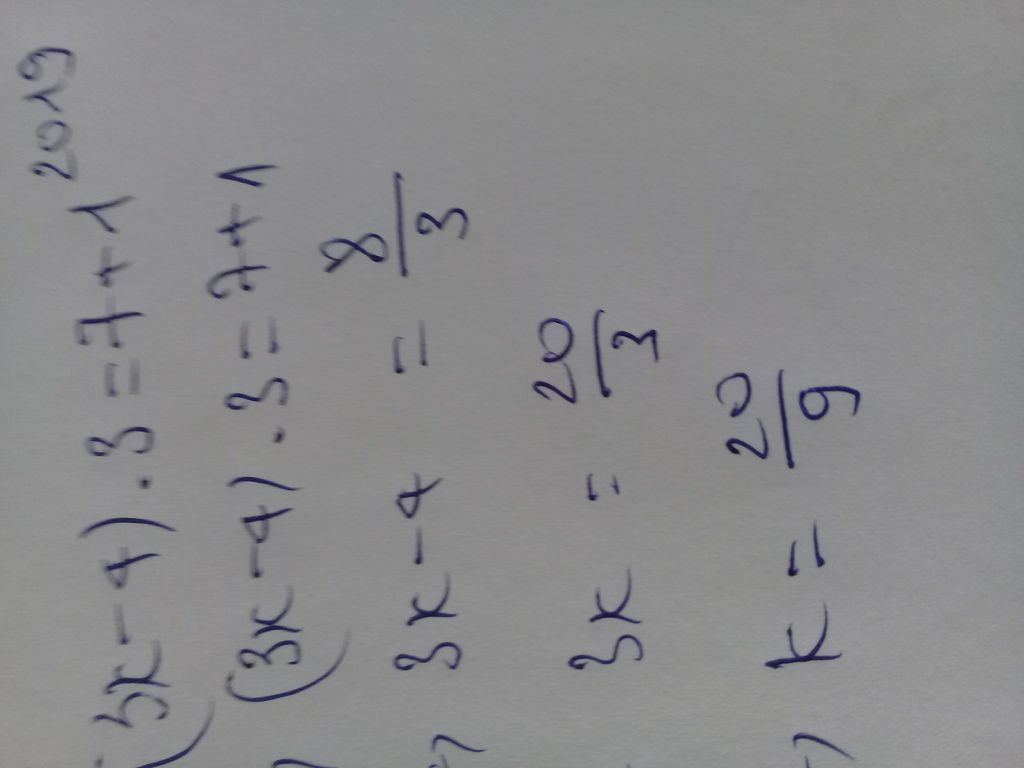 (3x-4).3=7+1²⁰¹⁹
(3x-4).3=7+1
3x-4 = 8/3
3x = 20/3
x = 20/9